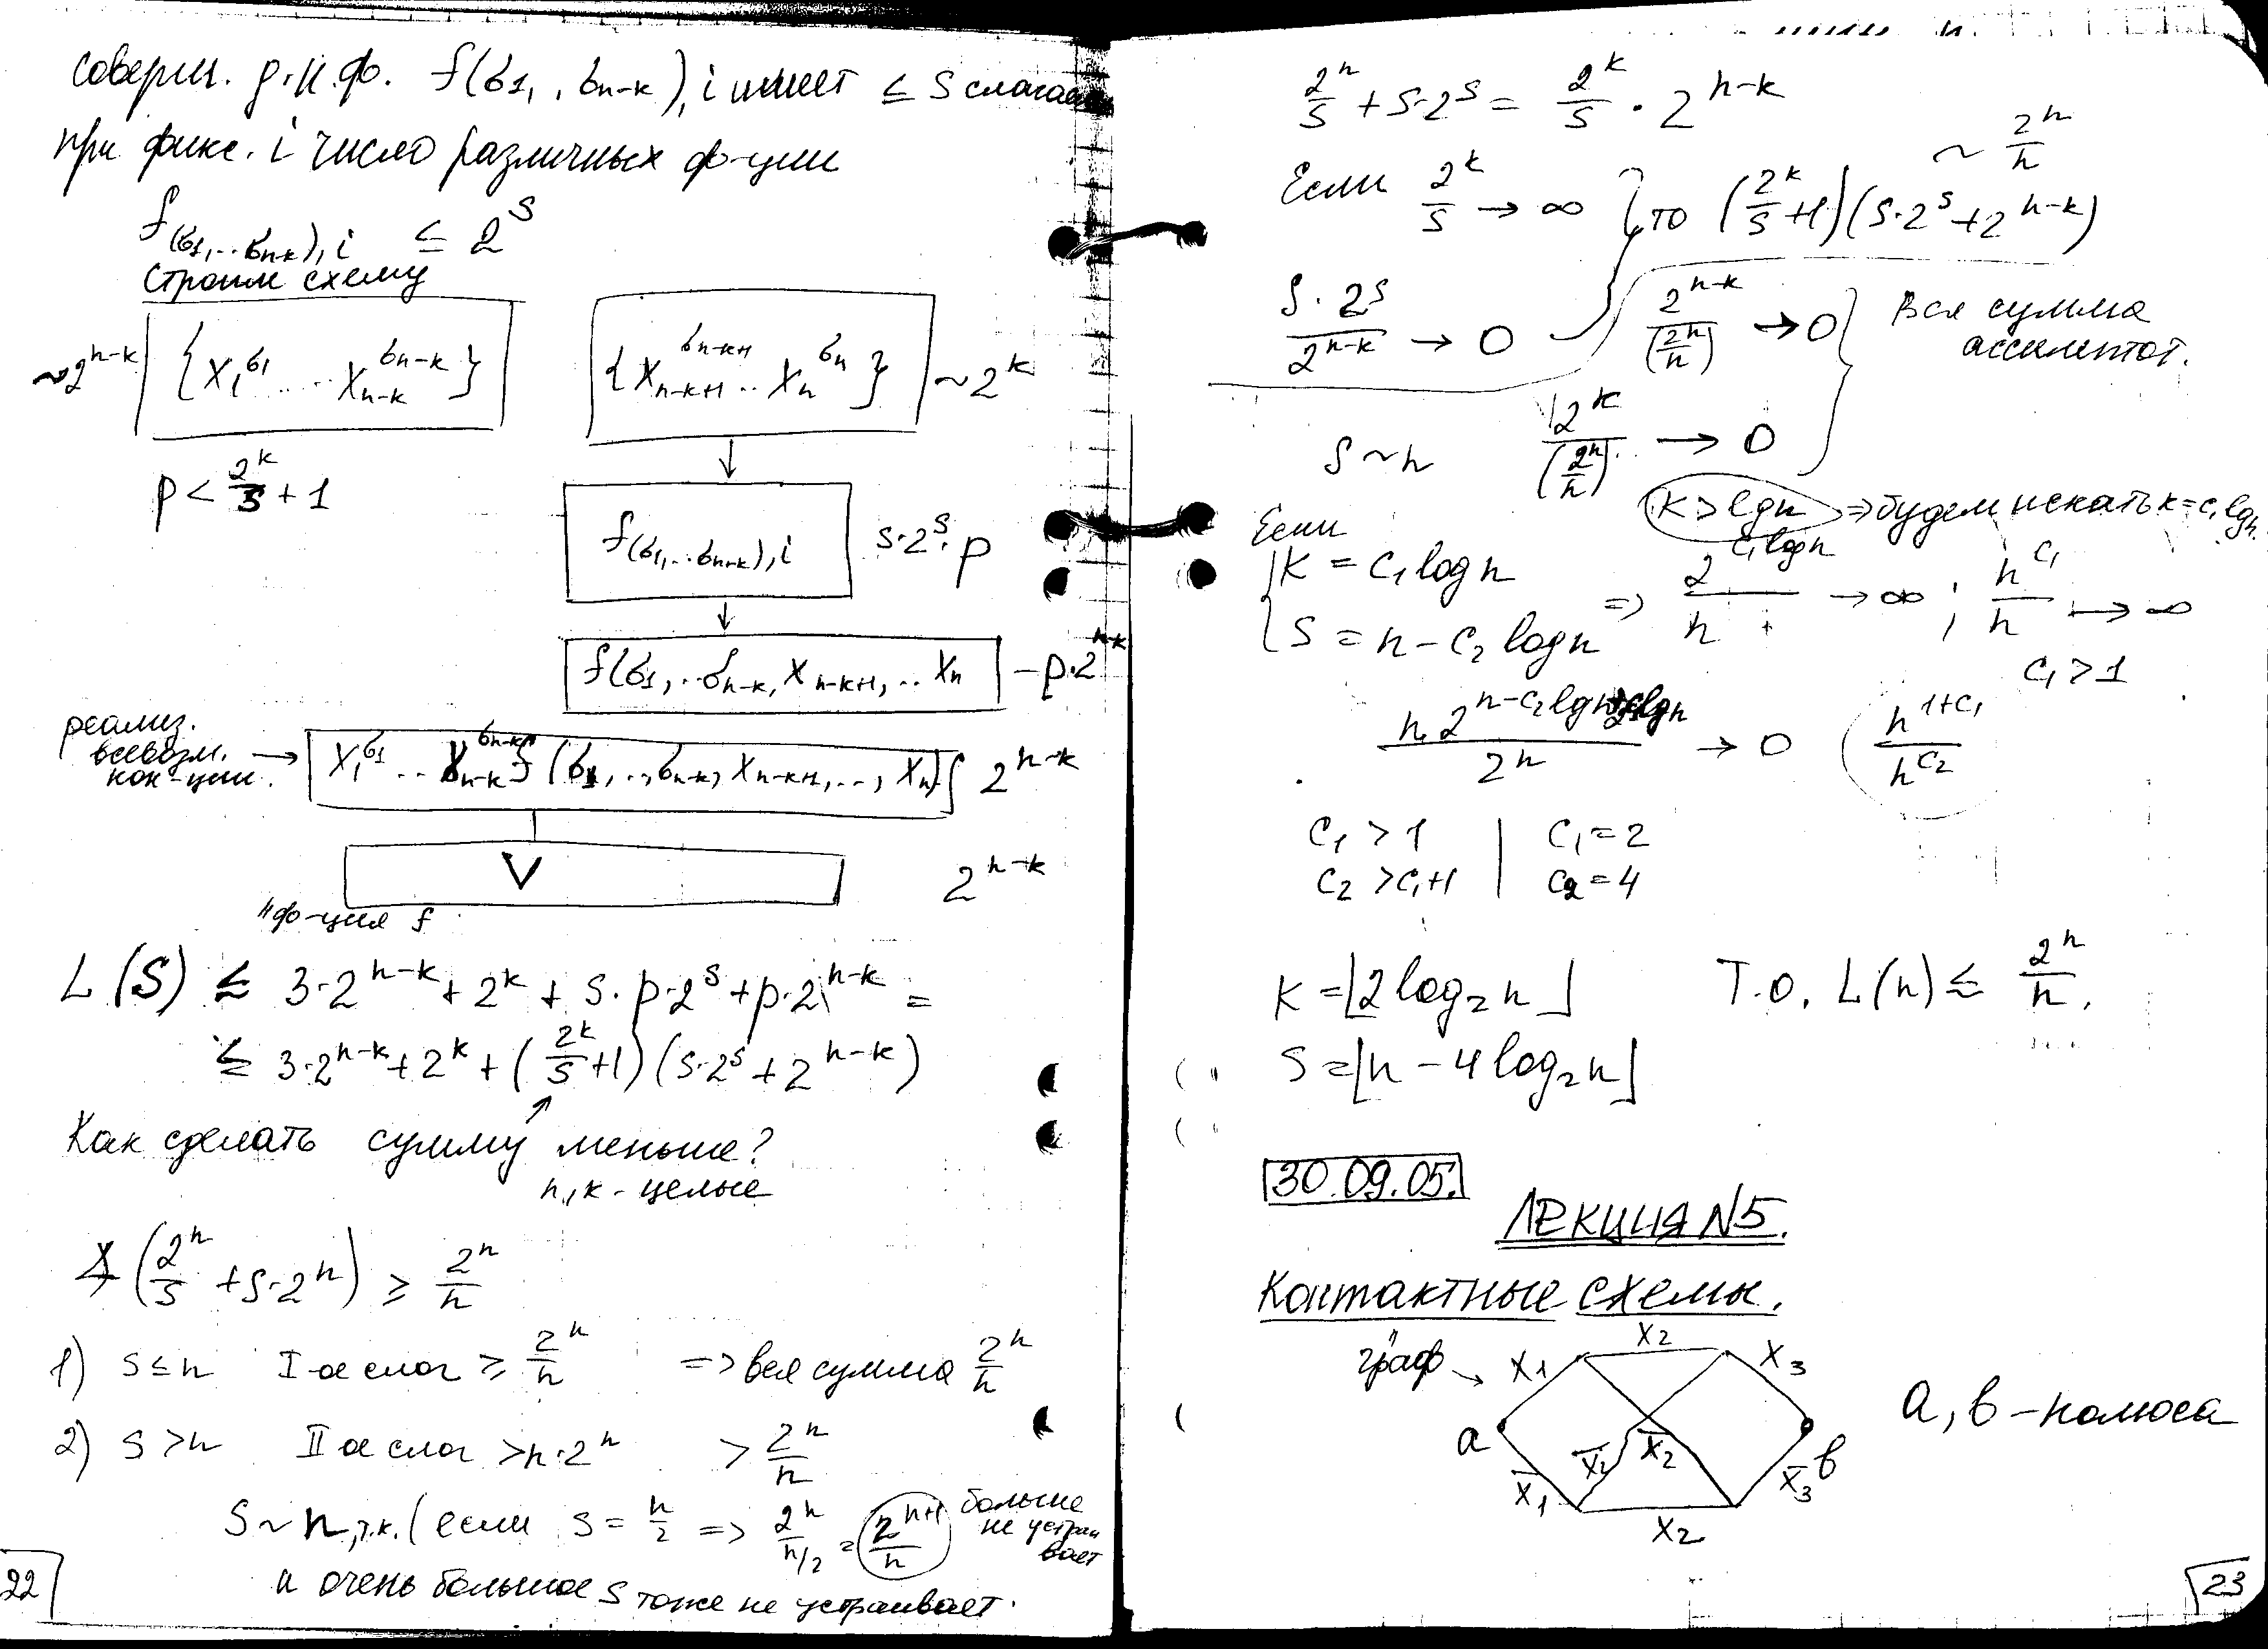 соверш. д.н.ф. f(σ1, , σn-k), i имеет ≤ S слагаем
при фикс. i число различных ф-ции
f(σ1,..σn-k), i ≤ 2^S
Строим схему
~2^{n-k} {X1^{σ1} .... Xn-k^{σn-k}} {Xn-k+1^{σn-k+1} .. Xn^{σn}} ~2^k
p < 2^k/S + 1
f(σ1,..σn-k), i S·2^S·p
f(σ1,..σn-k, Xn-k+1,.. Xn – p·2^{n-k}
реализ.
всевозм.
кон-ции. → X1^{σ1} .. Xn-k^{σn-k} f (σ1,.., σn-k, Xn-k+1,.., Xn) 2^{n-k}
V 2^{n-k}
"ф-ция f
L(S) ≲ 3·2^{n-k} + 2^k + S·p·2^S + p·2^{n-k} =
≤ 3·2^{n-k} + 2^k + (2^k/S + 1)(S·2^S + 2^{n-k})
Как сделать сумму меньше?
n, k - целые
(2^n/S + S·2^n) ≥ 2^n/n
1) S ≤ n I-ое слаг ≥ 2^n/n => вся сумма 2^n/n
2) S > n II ое слаг > n·2^n > 2^n/n
S ~ n, т.к. (если S = n/2 => 2^n/(n/2) = 2^{n+1}/n больше
не устраи
вает
и очень большое S тоже не устраивает.
22
2^n/S + S·2^S = 2^k/S · 2^{n-k}
~ 2^n/n
Если 2^k/S → ∞ } то (2^k/S + 1)(S·2^S + 2^{n-k})
S·2^S/2^{n-k} → 0
2^{n-k}/(2^n/n) → 0 } Вся сумма
ассимптот.
S ~ n 2^k/(2^n/n) → 0
K > lgn => будем искать k = c1 lgn.
Если
{ K = C1 logn
S = n - C2 logn => 2^{C1 logn}/n → ∞ ; n^{C1}/n → ∞
C1 > 1
n·2^{n-C2lgn+C1lgn}/2^n → 0 (n^{1+C1}/n^{C2})
C1 > 1 | C1 = 2
C2 > C1+1 | C2 = 4
K = ⌊2 log2 n⌋ Т.О. L(n) ≲ 2^n/n.
S = ⌊n - 4 log2 n⌋
30.09.05.
ЛЕКЦИЯ N5.
Контактные схемы.
"
граф → X1 X2 X3
a X̅1 X̅2 X̅3 в
X̅1 X2
a, в – полюса
23